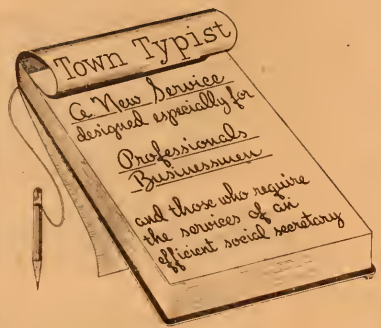 Town Typist
A New Service
designed especially for
Professionals
Businessmen
and those who require
the services of an
efficient social secretary